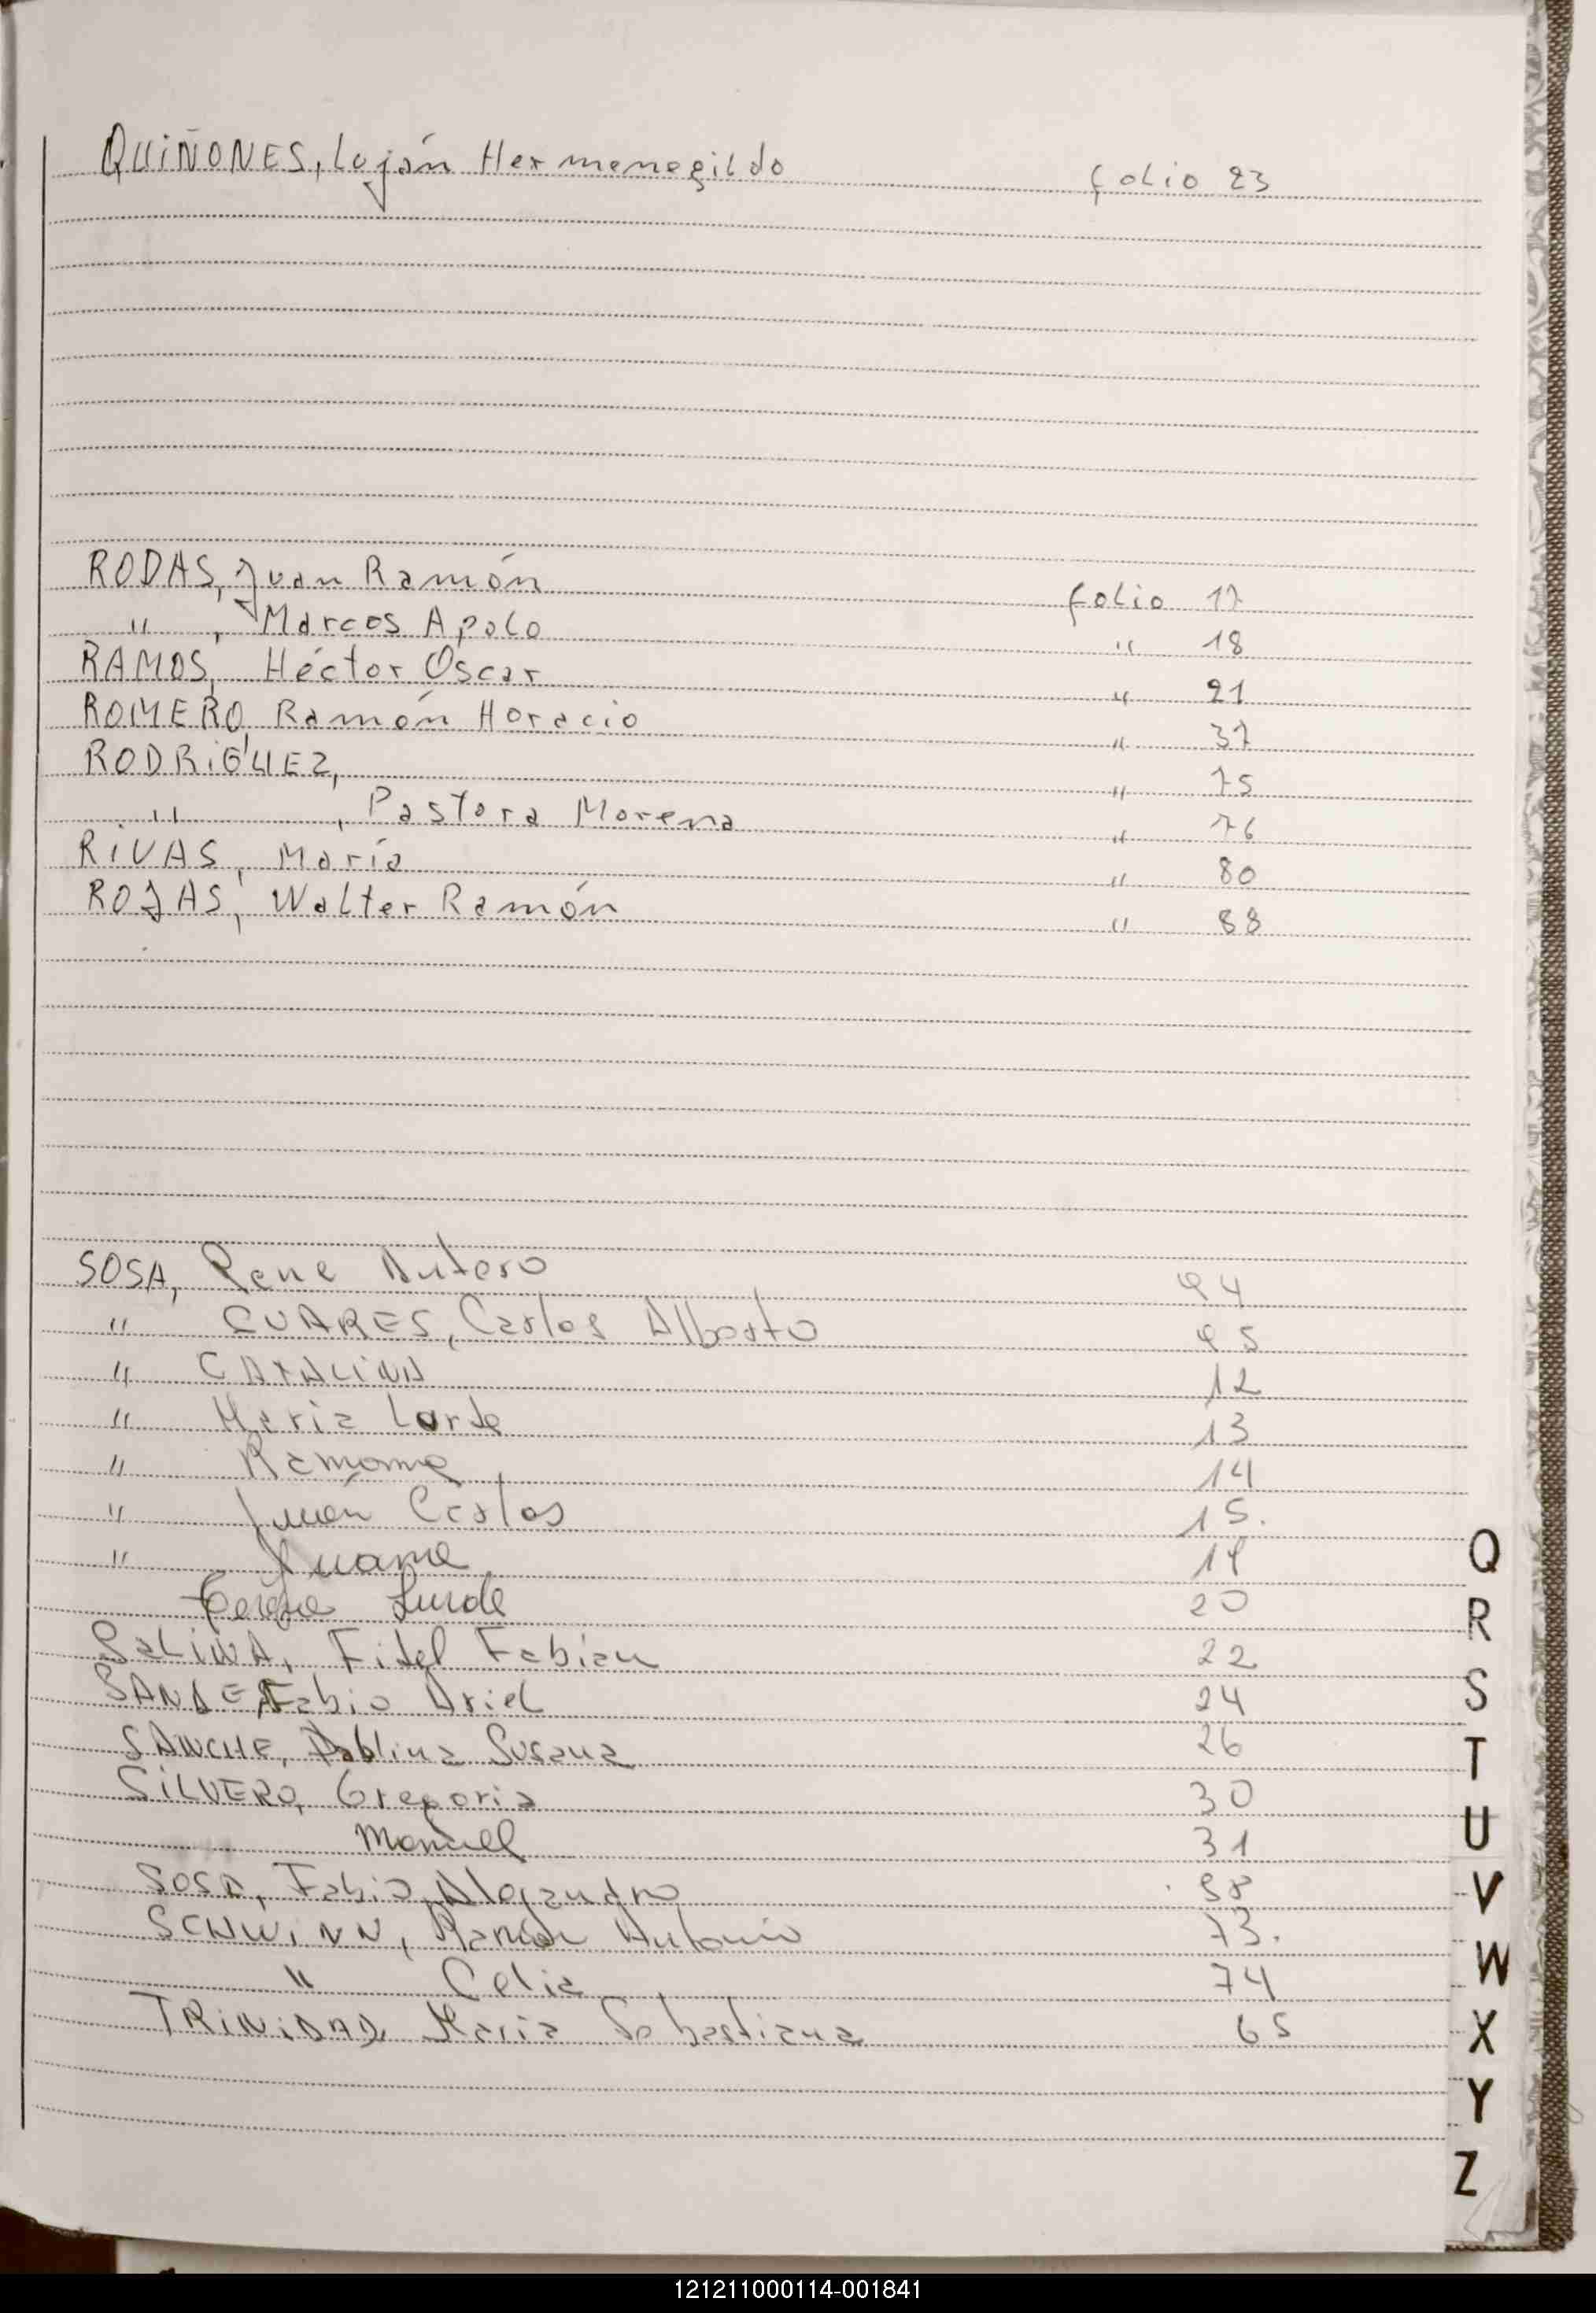 QUIÑONES, Luján Hermenegildo folio 23
RODAS, Juan Ramón folio 17
" , Marcos Apolo " 18
RAMOS, Héctor Oscar " 21
ROMERO, Ramón Horacio " 37
RODRIGUEZ, " 75
" , Pastora Morena " 76
RIVAS, María " 80
ROJAS, Walter Ramón " 88
SOSA, Rene Antero 94
" SUARES, Carlos Alberto 95
" CATALINA 12
" Maria 13
" Ramona 14
" Juan Carlos 15.
" Juana 19
20
SALINA, Fidel Fabian 22
Fabio Ariel 24
SANCHE, Pablina Susana 26
SILVERO, Gregoria 30
Manuel 31
SOSA, Fabio Alejandro
SCHWINN, Ramón Antonio 73.
" Celia 74
TRINIDAD Maria Sebastiana 65
Q
R
S
T
U
V
W
X
Y
Z
121211000114-001841